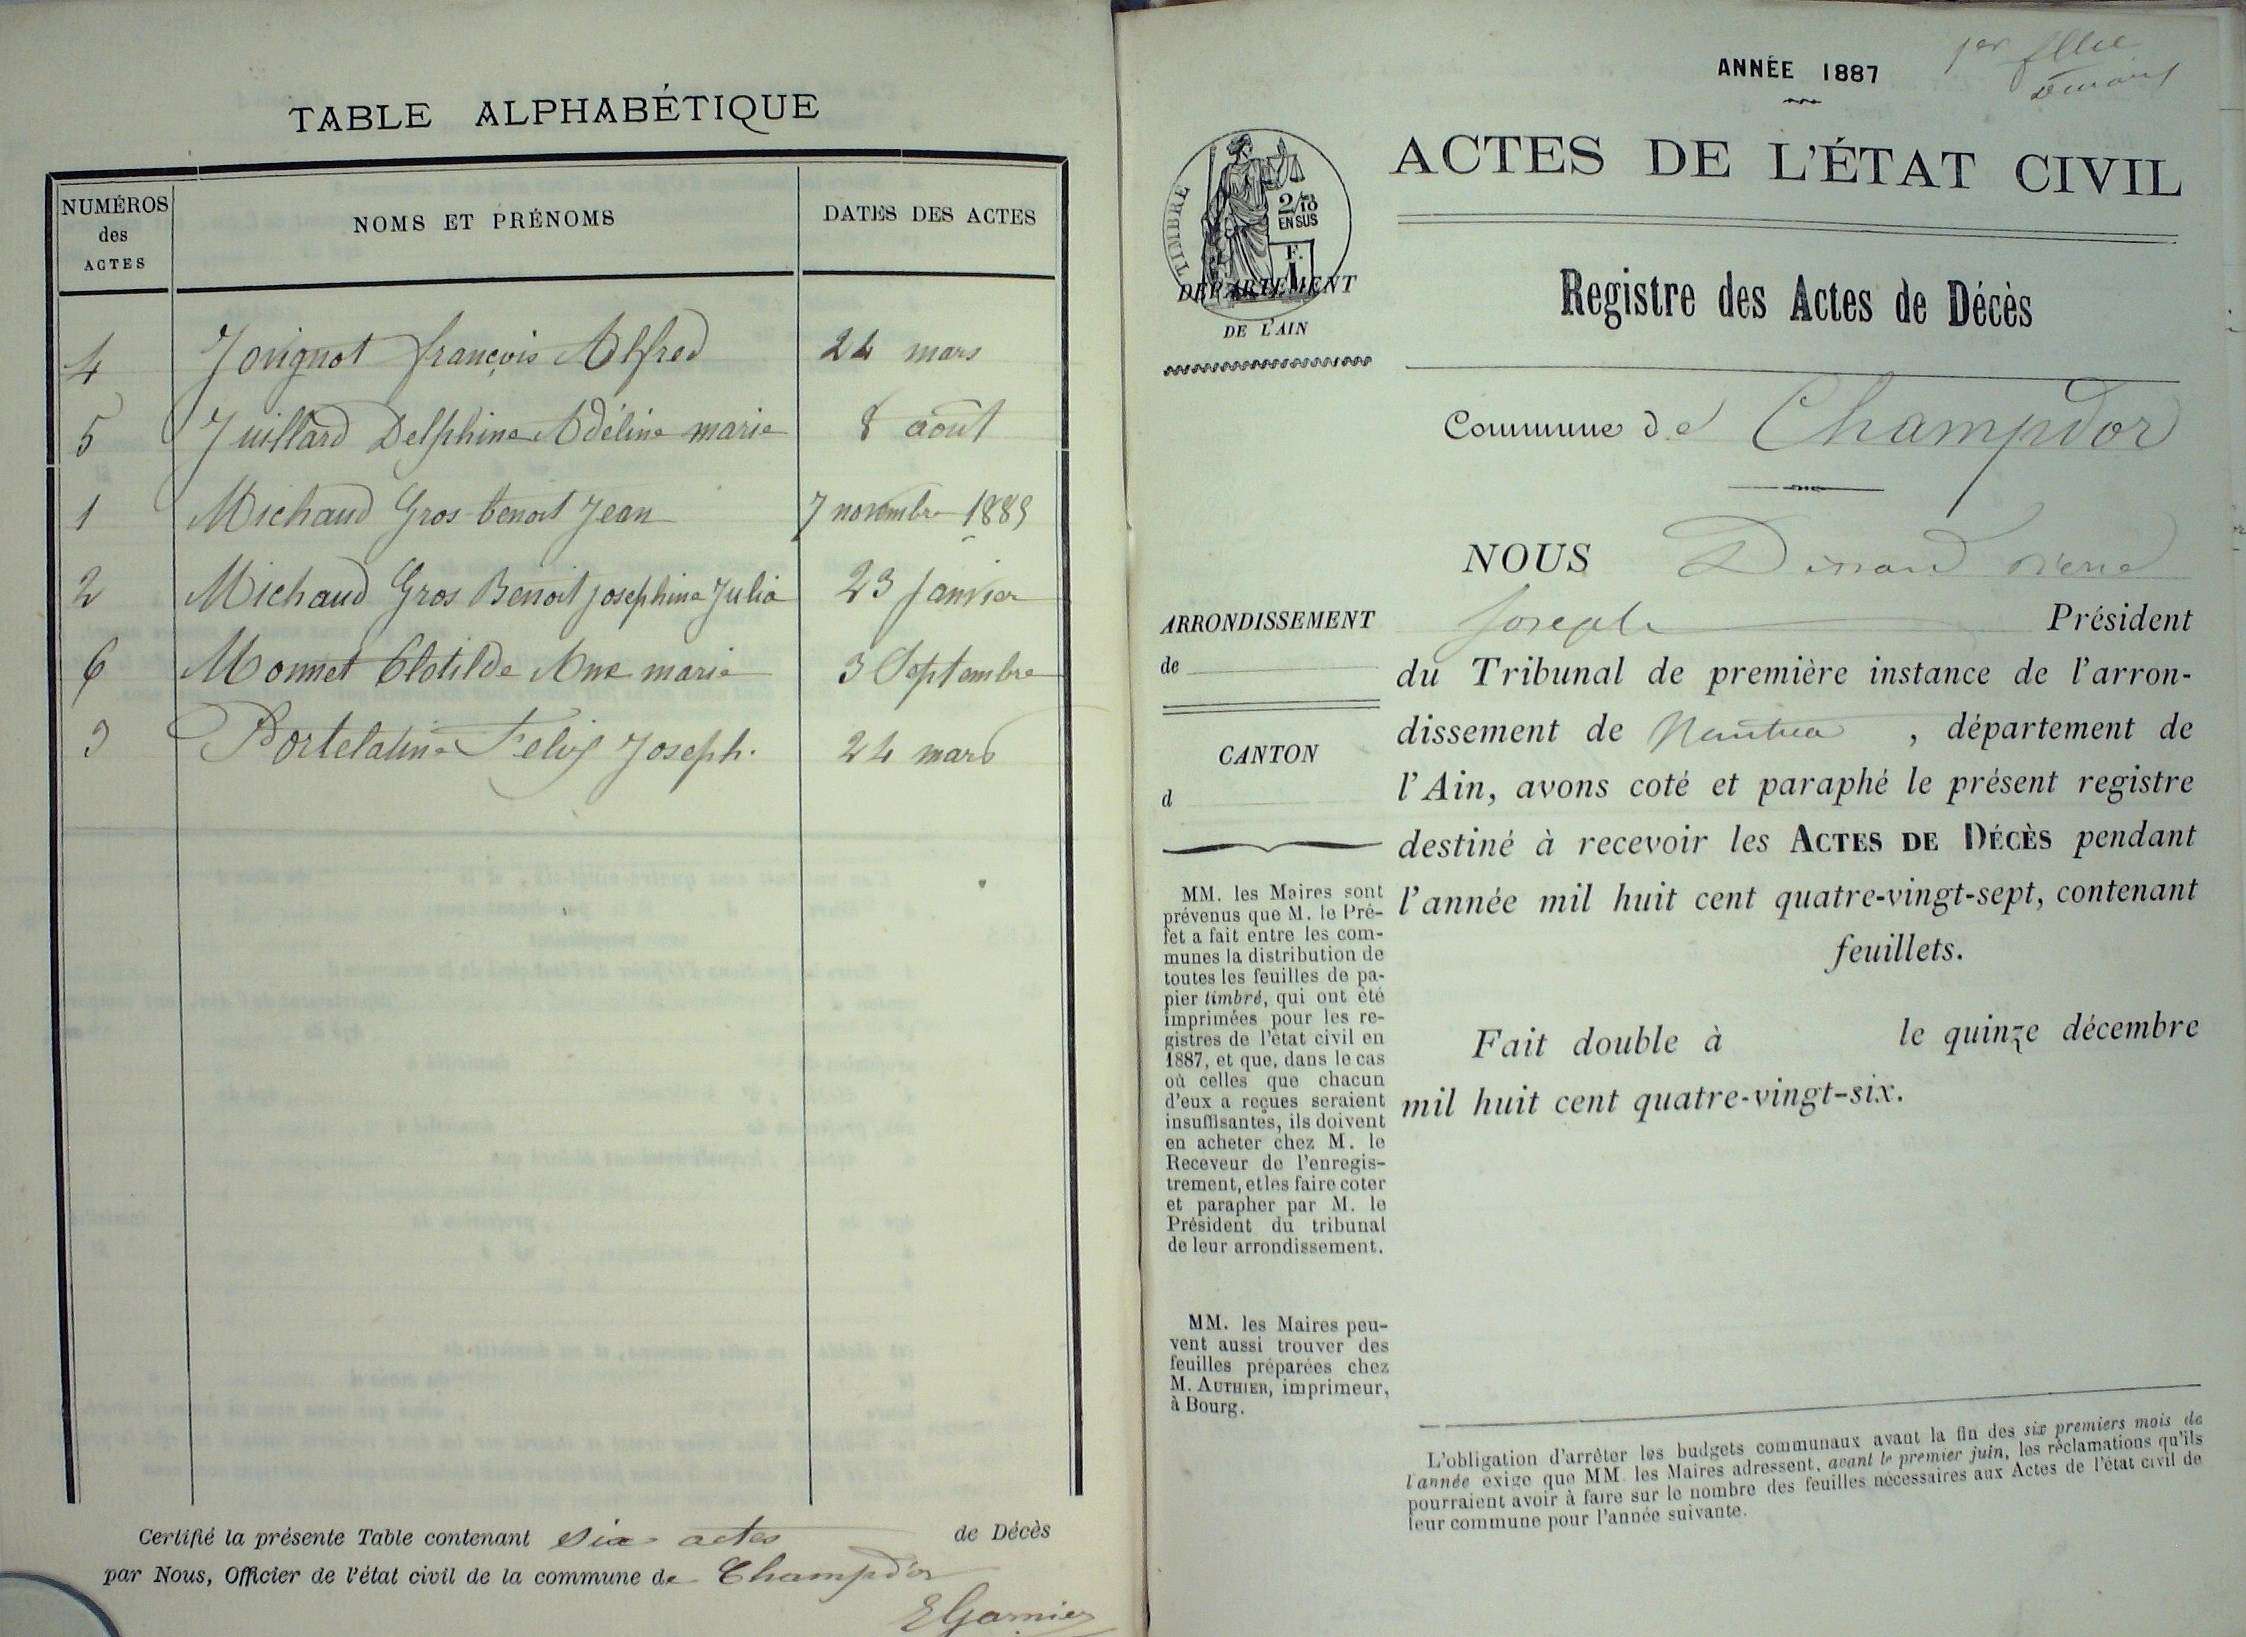 TABLE ALPHABÉTIQUE
NUMÉROS des ACTES
NOMS ET PRÉNOMS
DATES DES ACTES
4 Jovignot françois Alfred 24 mars
5 Juillard Delphine Adéline marie 8 août
1 Michaud Gros benoit Jean 7 novembre 1885
2 Michaud Gros Benoit josephine Julia 23 Janvier
6 Monnet Clotilde Ane marie 3 Septembre
3 Portelatine Felix Joseph. 24 mars
Certifié la présente Table contenant six actes de Décès
par Nous, Officier de l'état civil de la commune de Champdor
EGarnier
ANNÉE 1887
1er
TIMBRE
2/10
EN SUS
F.
1
DÉPARTEMENT
DE L'AIN
ACTES DE L'ÉTAT CIVIL
Registre des Actes de Décès
Commune de Champdor
ARRONDISSEMENT
de
CANTON
d
MM. les Maires sont
prévenus que M. le Pré-
fet a fait entre les com-
munes la distribution de
toutes les feuilles de pa-
pier timbré, qui ont été
imprimées pour les re-
gistres de l'état civil en
1887, et que, dans le cas
où celles que chacun
d'eux a reçues seraient
insuffisantes, ils doivent
en acheter chez M. le
Receveur de l'enregis-
trement, et les faire coter
et parapher par M. le
Président du tribunal
de leur arrondissement.
MM. les Maires peu-
vent aussi trouver des
feuilles préparées chez
M. AUTHIER, imprimeur,
à Bourg.
NOUS Pierre
Joseph Président
du Tribunal de première instance de l'arron-
dissement de Nantua, département de
l'Ain, avons coté et paraphé le présent registre
destiné à recevoir les ACTES DE DÉCÈS pendant
l'année mil huit cent quatre-vingt-sept, contenant
feuillets.
Fait double à le quinze décembre
mil huit cent quatre-vingt-six.
L'obligation d'arrêter les budgets communaux avant la fin des six premiers mois de
l'année exige que MM. les Maires adressent, avant le premier juin, les réclamations qu'ils
pourraient avoir à faire sur le nombre des feuilles nécessaires aux Actes de l'état civil de
leur commune pour l'année suivante.